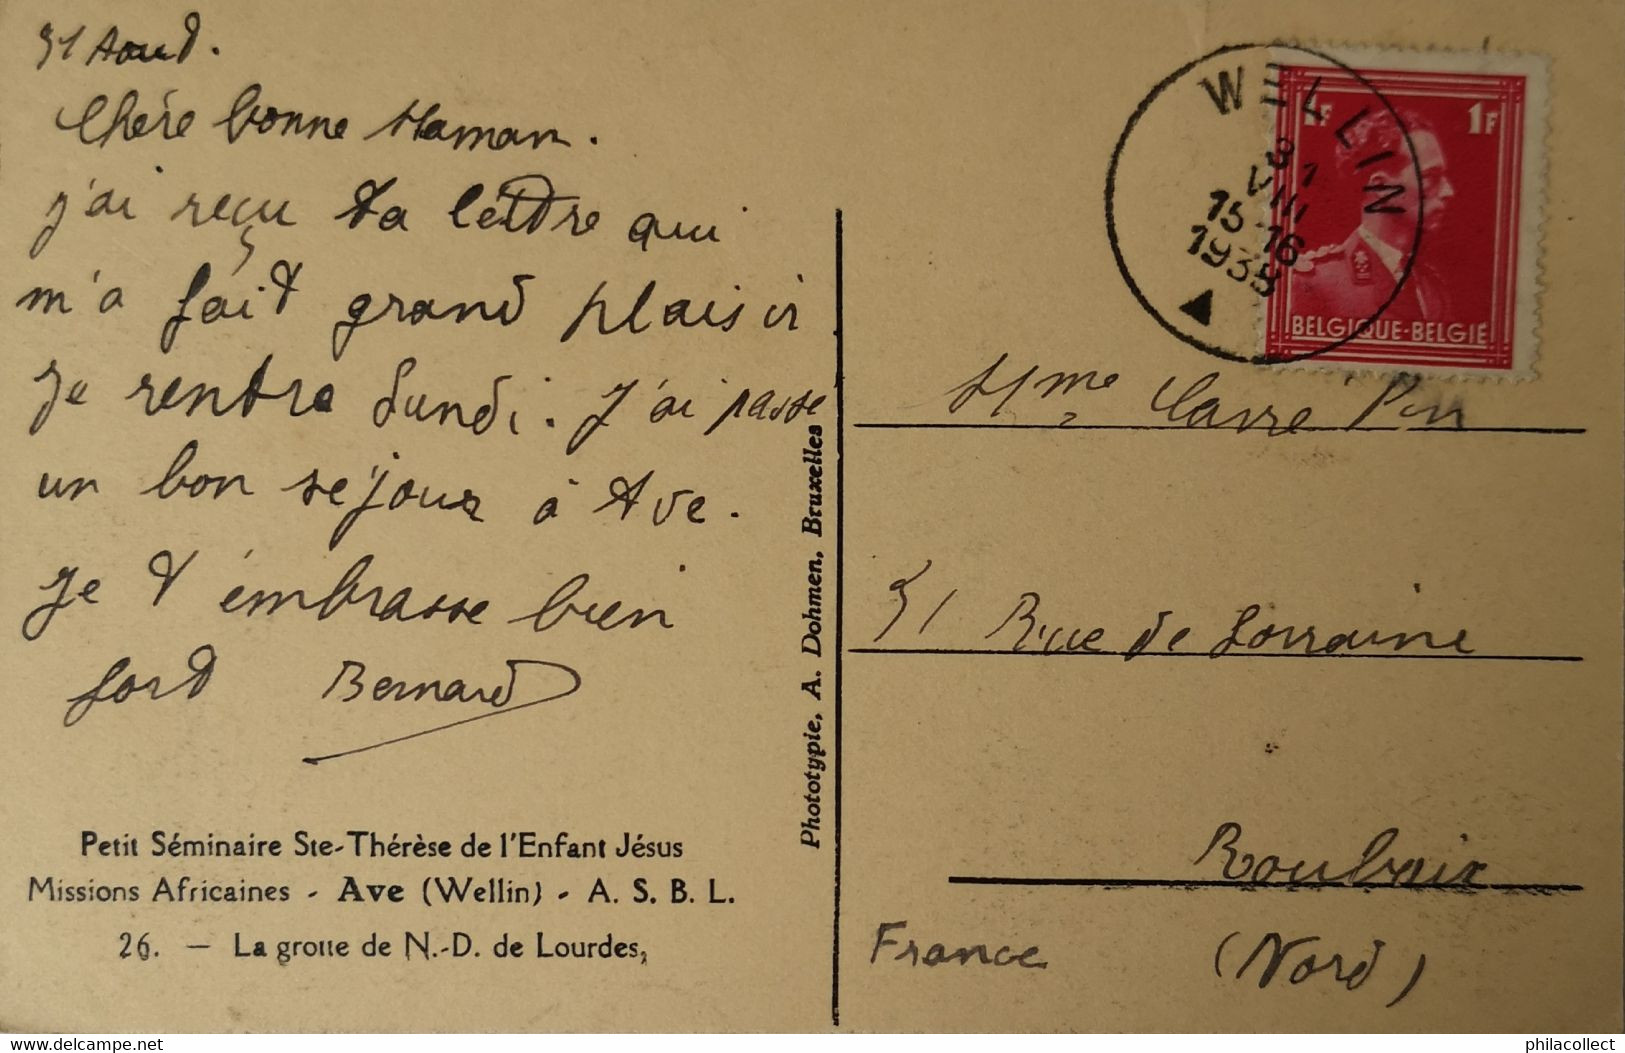 31 Aout.
Chère bonne Maman.
j'ai reçu ta lettre qui
m'a fait grand plaisir
je rentre Lundi. J'ai passe
un bon séjour à Ave.
Je t'émbrasse bien
fort Bernard
Petit Séminaire Ste-Thérèse de l'Enfant Jésus
Missions Africaines - Ave (Wellin) - A. S. B. L.
26. — La grotte de N.-D. de Lourdes,
Phototypie, A. Dohmen, Bruxelles
WELLIN
31
VIII
15-16
1935
1F 1F
BELGIQUE-BELGIË
Mme
31 Rue de Lorraine
Roubaix
France (Nord)
philacollect